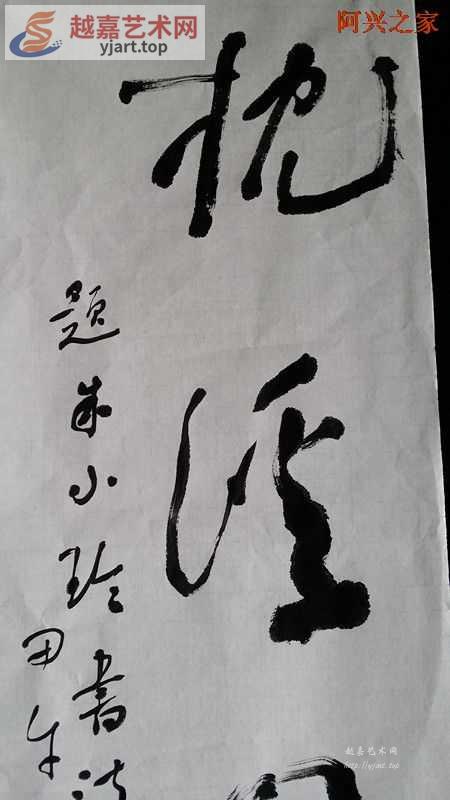 越嘉艺术网
yjart.top
阿兴之家
枕溪
题朱小玲书法
田牛
越嘉艺术网
http://yjart.top